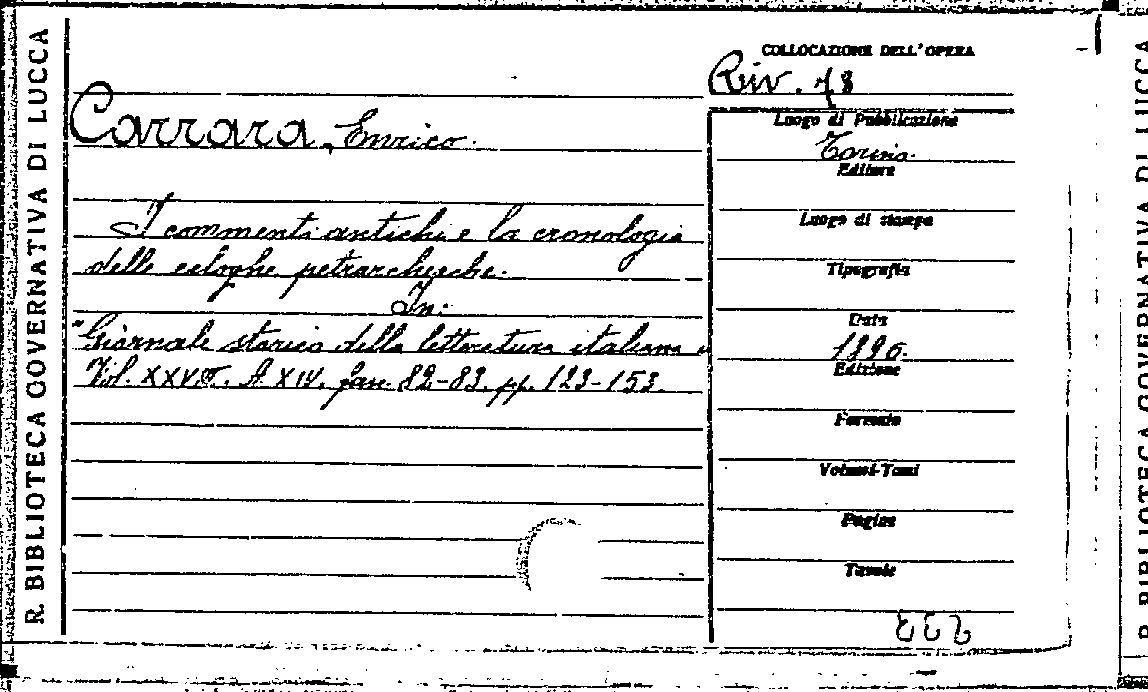 R. BIBLIOTECA GOVERNATIVA DI LUCCA
COLLOCAZIONE DELL'OPERA
Riv. 78
Carrara, Enrico.
I commenti antichi e la cronologia
delle ecloghe petrarchesche.
In:
"Giornale storico della letteratura italiana"
Vol. A. XIV. fasc. 82-83. pp. 123-153.
Luogo di Pubblicazione
Torino.
Editore
Luogo di stampa
Tipografia
Data
Edizione
Formato
Volumi-Tomi
Pagine
Tavole
R BIBLIOTECA GOVERNATIVA DI LUCCA